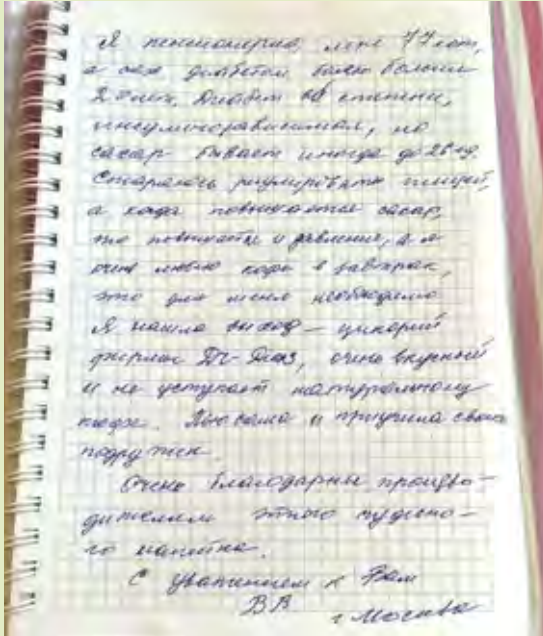 Я пенсионерка, мне 77 лет,
а сах. диабетом болею больше
20 лет. Диабет II степени,
инсулинозависимая, но
сахар бывает иногда до 26 ед.
Стараюсь регулировать пищей,
а когда повышается сахар,
то повышается и давление, а я
очень люблю кофе в завтрак,
это для меня необходимо
Я нашла выход — цикорий
фирмы Ди-Диаз, очень вкусный
и не уступает натуральному
кофе. Пью сама и приучила своих
подружек.
Очень благодарны произво-
дителям этого чудесно-
го напитка.
С уважением к Вам
ВВ
г. Москва